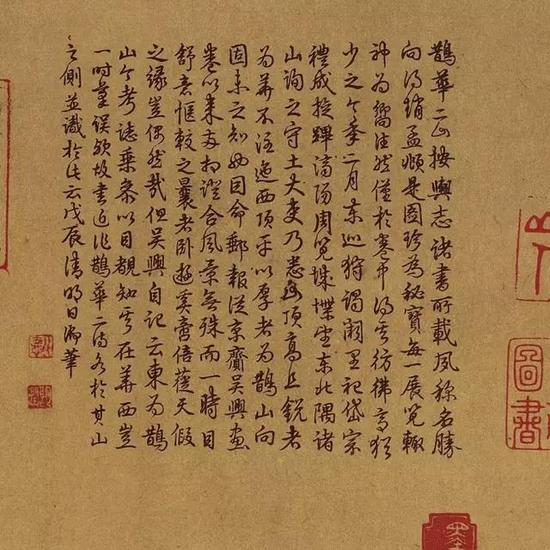 鵲華二山按輿志諸書所載夙稱名勝
向得趙孟頫是圖珍為秘寶每一展覽輒
神為嚮往然僅於卷中得其彷彿耳猶
少之今年二月東巡狩謁闕里祀岱宗
禮成旋蹕濟陽周覽城堞坐東北隅諸
山詢之守土大吏乃悉山頂高且銳者
為華不注迤西頂平以厚者為鵲山向
固未之知也因命郵報從京齎吳興畫
卷以來兩相證合風景無殊而一時目
舒意愜較之曩者臥遊奚啻倍蓰天假
之緣豈偶然哉但吳興自記云東為鵲
山今考誌乘參以目覩知其在華西豈
一時筆誤歟故書近作鵲華二詩各於其山
之側並識於此云戊辰清明日御筆
圖書